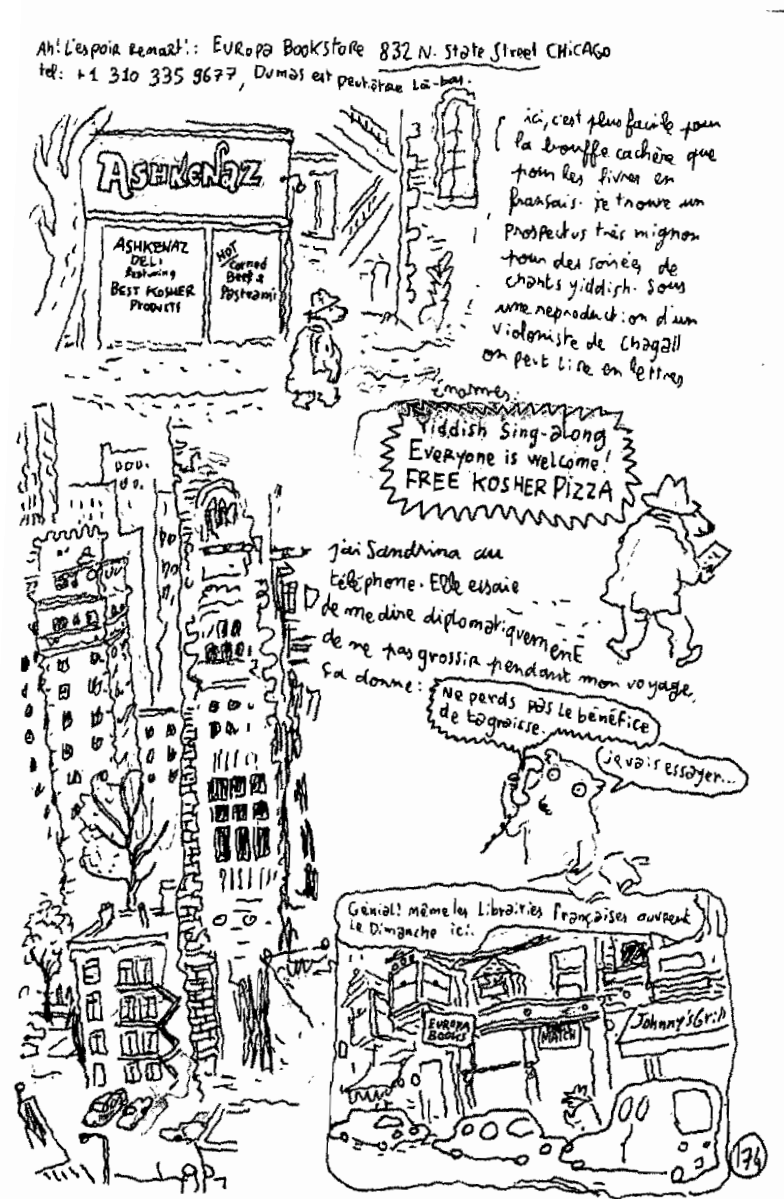 Ah! L'espoir renaît!: EUROPA BOOKSTORE 832 N. State Street CHICAGO
tel: +1 310 335 9677, Dumas est peut-être là-bas.
ASHKENAZ
ASHKENAZ
DELI
Featuring
BEST KOSHER
PRODUCTS
HOT
Corned
Beef &
Pastrami
ici, c'est plus facile pour
la bouffe cachère que
pour les livres en
français. je trouve un
prospectus très mignon
pour des soirées de
chants yiddish. Sous
une reproduction d'un
violoniste de Chagall
on peut lire en lettres
énormes:
Yiddish Sing-along
Everyone is welcome!
FREE KOSHER PIZZA
j'ai Sandrina au
téléphone. Elle essaie
de me dire diplomatiquement
de ne pas grossir pendant mon voyage,
ça donne:
Ne perds pas le bénéfice
de ta graisse.
je vais essayer...
Génial! même les Librairies Françaises ouvrent
le Dimanche ici.
EUROPA
BOOKS
MATCH
Johnny's Grill
174